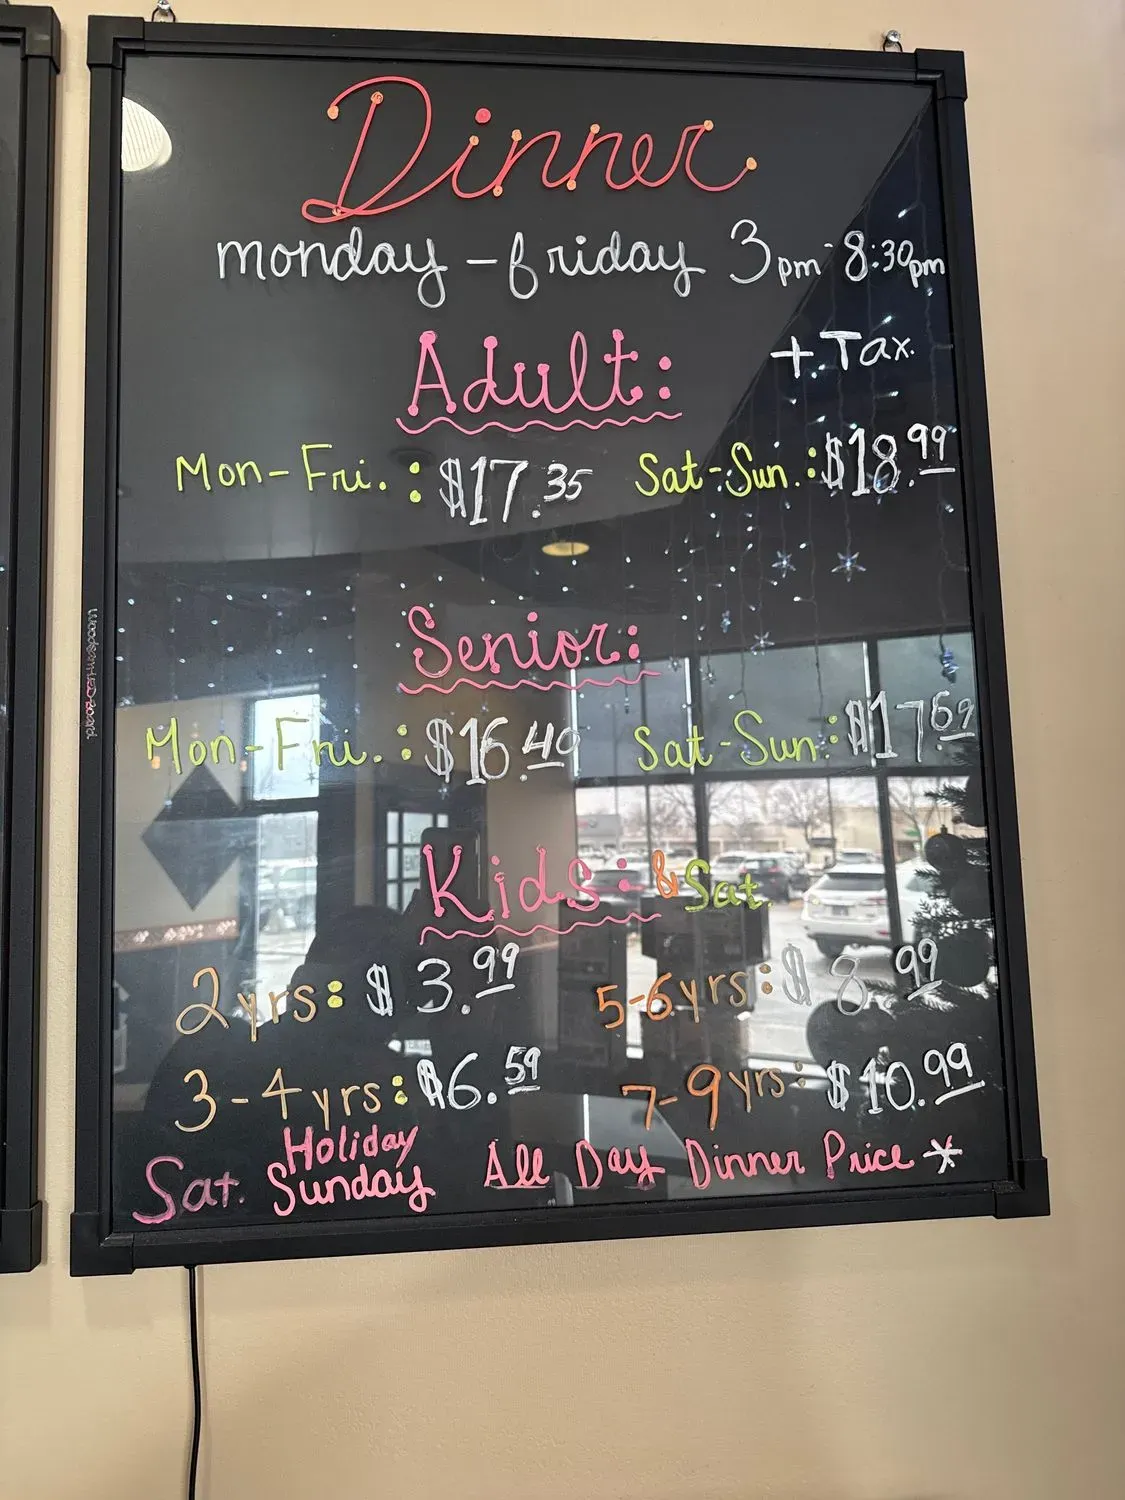 Dinner
monday - friday 3pm - 8:30pm
+. Tax.
Adult:
Mon-Fri. : $17.35 Sat-Sun. : $18.99
Senior:
Mon-Fri. : $16.40 Sat-Sun: $17.69
Kids: & Sat.
2yrs: $3.99 5-6yrs: $8.99
3-4yrs: $6.59 7-9yrs: $10.99
Holiday
Sat. Sunday All Day Dinner Price *